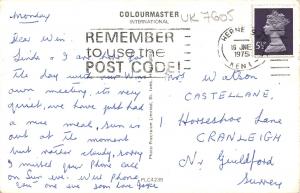 Monday
COLOURMASTER
INTERNATIONAL
UK7605
Dear Win
REMEMBER
to use the
POST CODE!
HERNE
16 JUNE
1975
KENT
Linda & I are for
the day with our Win
own meeting, its very
quiet, we have just had
a nice meal, Sun is
out at the moment
but rather windy, sorry
I missed your Phone call
on Sun eve. Will Phone
you one eve soon love
Watson
CASTELLANE,
1 Horseshoe Lane
CRANLEIGH
Nr Guildford
Surrey
PLC4223B